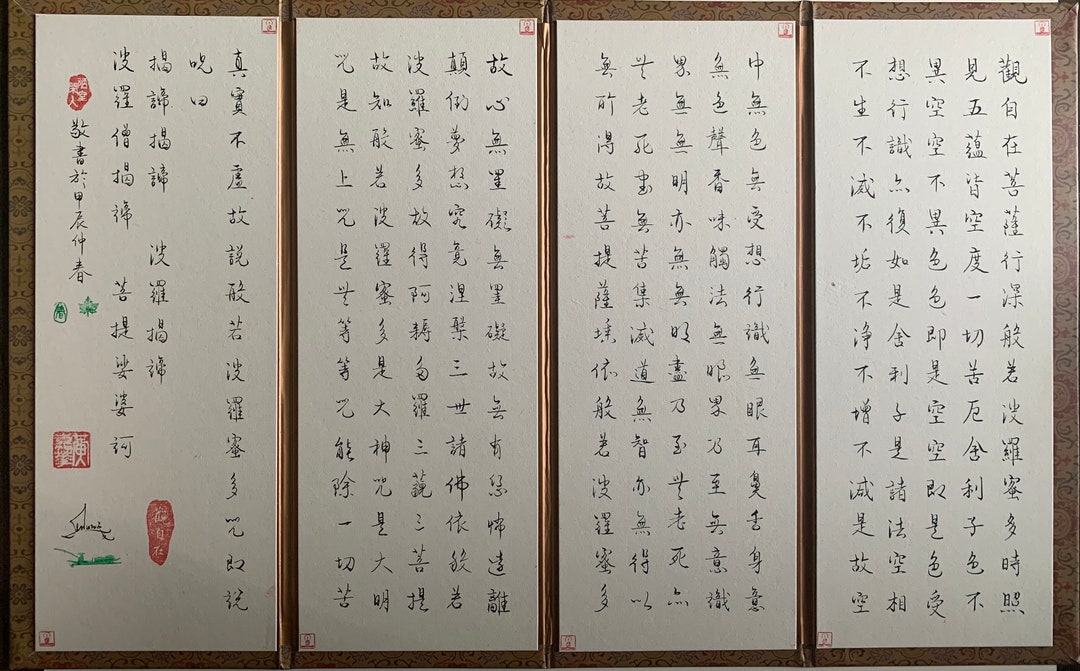 觀自在菩薩行深般若波羅蜜多時照
見五蘊皆空度一切苦厄舍利子色不
異空空不異色色即是空空即是色受
想行識亦復如是舍利子是諸法空相
不生不滅不垢不净不增不減是故空
中無色無受想行識無眼耳鼻舌身意
無色聲香味觸法無眼界乃至無意識
界無無明亦無無明盡乃至無老死亦
無老死盡無苦集滅道無智亦無得以
無所得故菩提薩埵依般若波羅蜜多
故心無罣礙無罣礙故無有恐怖遠離
顛倒夢想究竟涅槃三世諸佛依般若
波羅蜜多故得阿耨多羅三藐三菩提
故知般若波羅蜜多是大神咒是大明
咒是無上咒是無等等咒能除一切苦
真實不虛故說般若波羅蜜多咒即說
呪曰
揭諦揭諦 波羅揭諦
波羅僧揭諦 菩提娑婆訶
敬書於甲辰仲春
觀自在
春